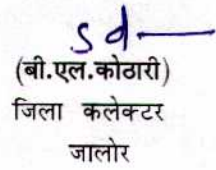 sd—
(बी.एल.कोठारी)
जिला कलेक्टर
जालोर